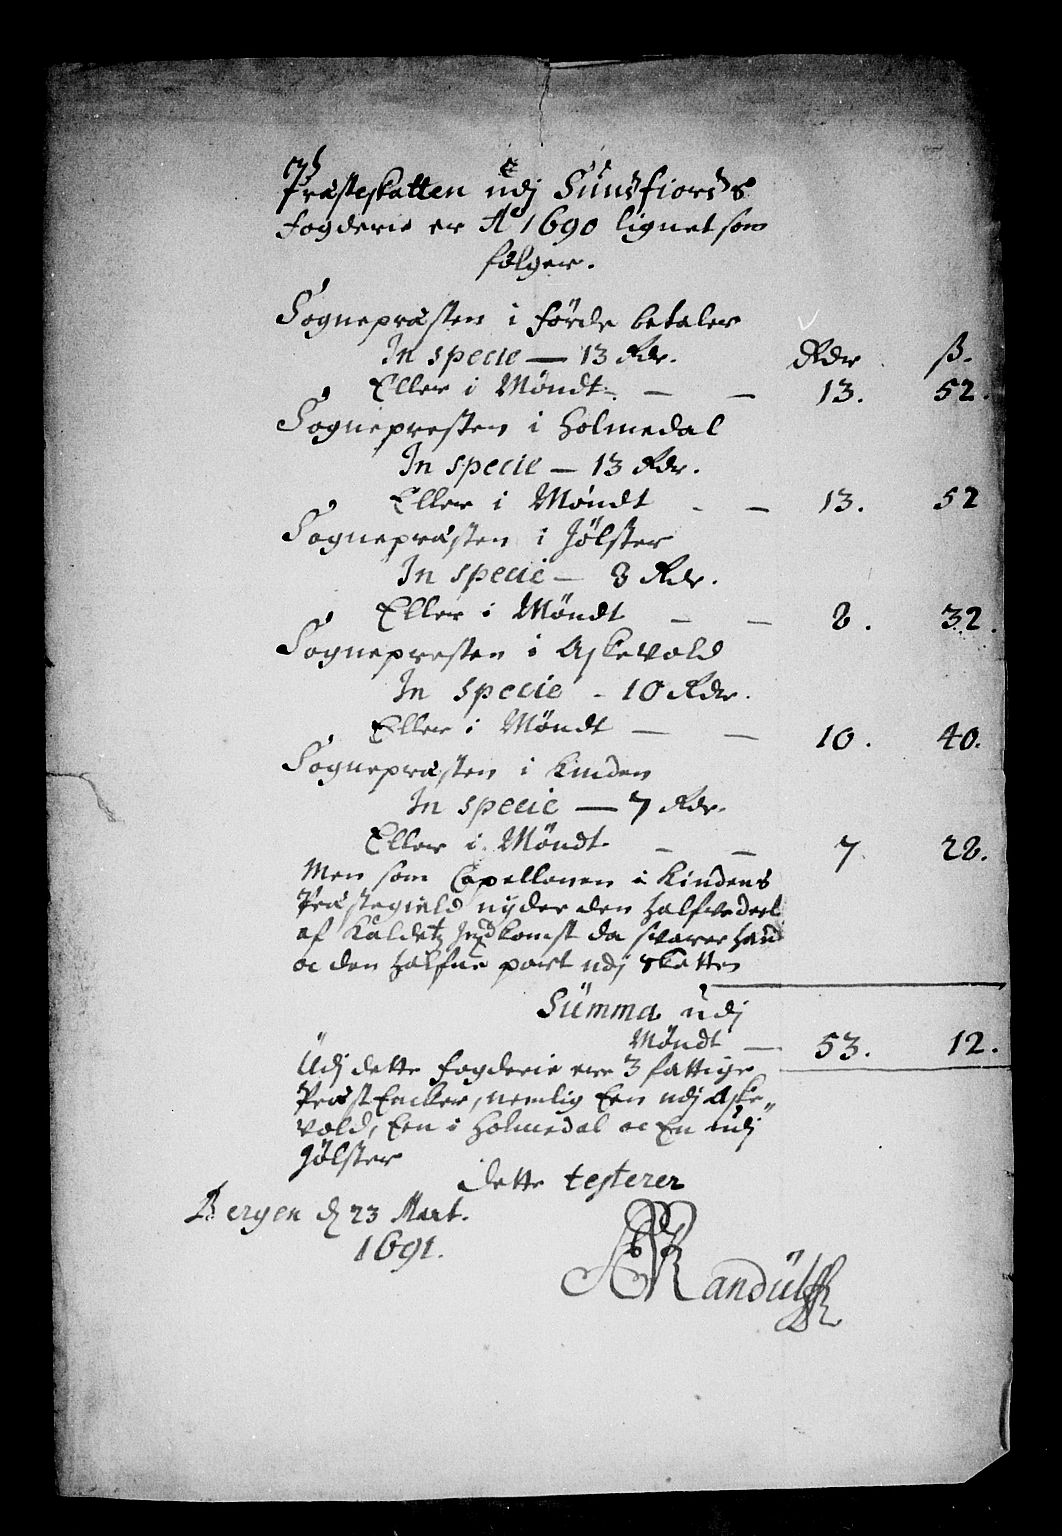 Præsteskatten udj Sundfiords
fogderie er Ao 1690 lignet som
følger.
Sognepræsten i førde betaler
In specie — 13 Rdr. Rdr ß.
Eller i Møndt. — — 13. 52.
Sognepresten i Holmedal
In specie — 13 Rdr.
Eller i Møndt - — 13. 52
Sognepræsten i Jølster
In specie — 8 Rdr.
Eller i Møndt — — 8. 32.
Sognepresten i Askevold
In specie - 10 Rdr.
Eller i Møndt — — 10. 40.
Sognepræsten i Kinden
In specie — 7 Rdr.
Eller i Møndt — — 7 28.
Men som Capellanen i Kindens
Præstegield nyder den halfvedeel
af Kaldetz Indkomst da svarer hand
oc den halfue part udj Skatten
Summa udj
Møndt — 53. 12.
Udj dette fogderie ere 3 fattige
Præst Encker, nemlig Een udj Aske„
vold, Een i Holmedal oc En udj
Jølster
Dette testerer
Bergen d 23 Mart.
1691.
Randulff